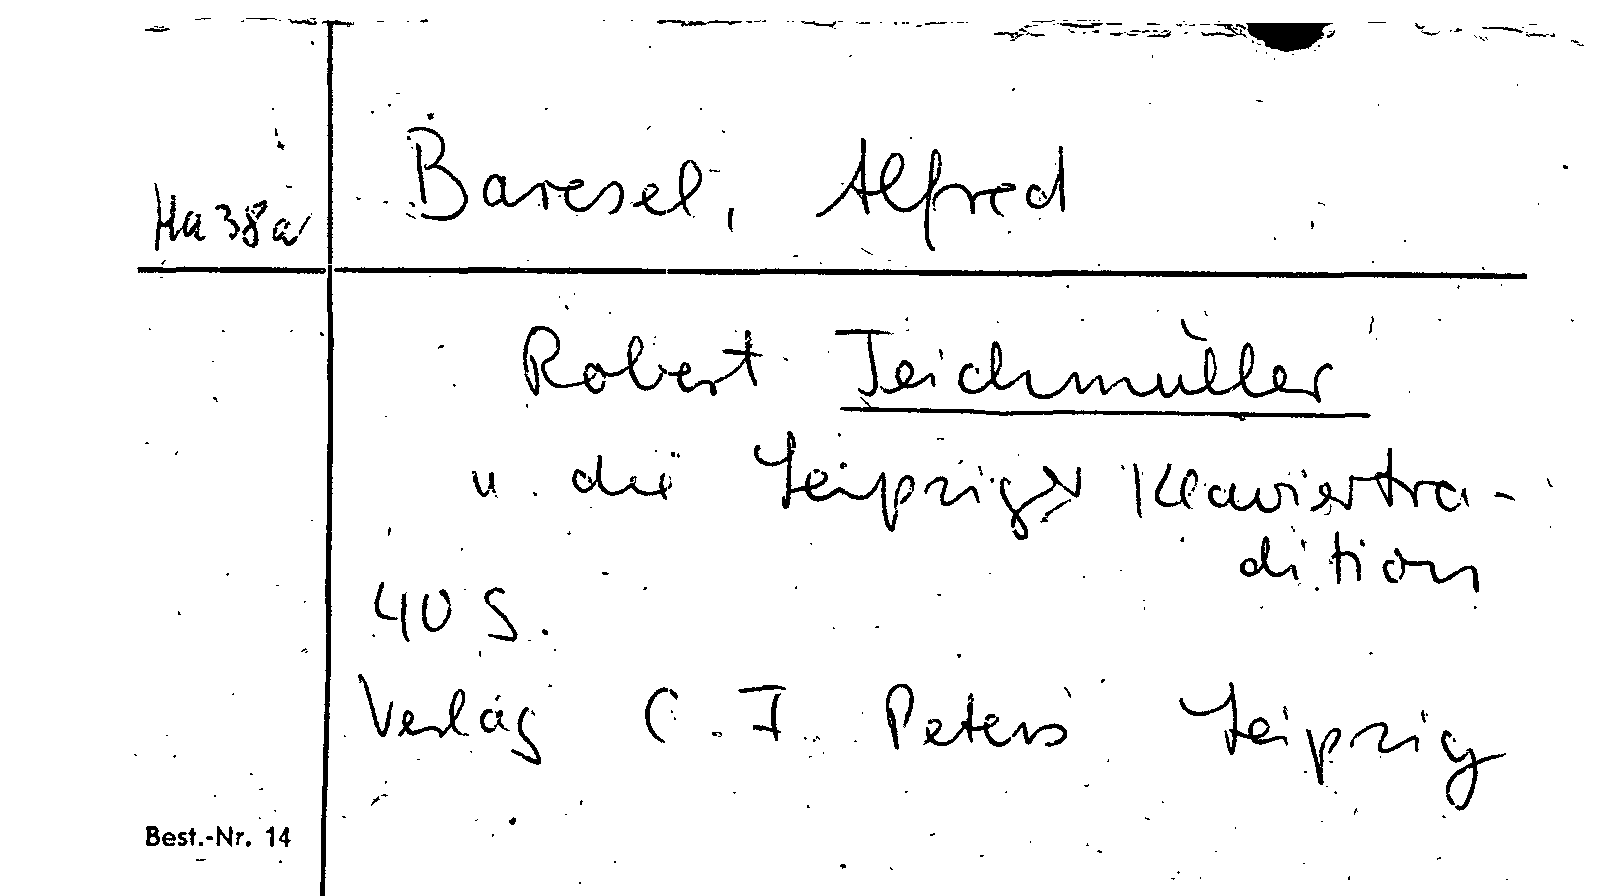 Baresel, Alfred
Ha 38a
Robert Teichmüller
u. die Leipziger Klaviertra-
dition
40 S.
Verlag C. F. Peters Leipzig
Best.-Nr. 14